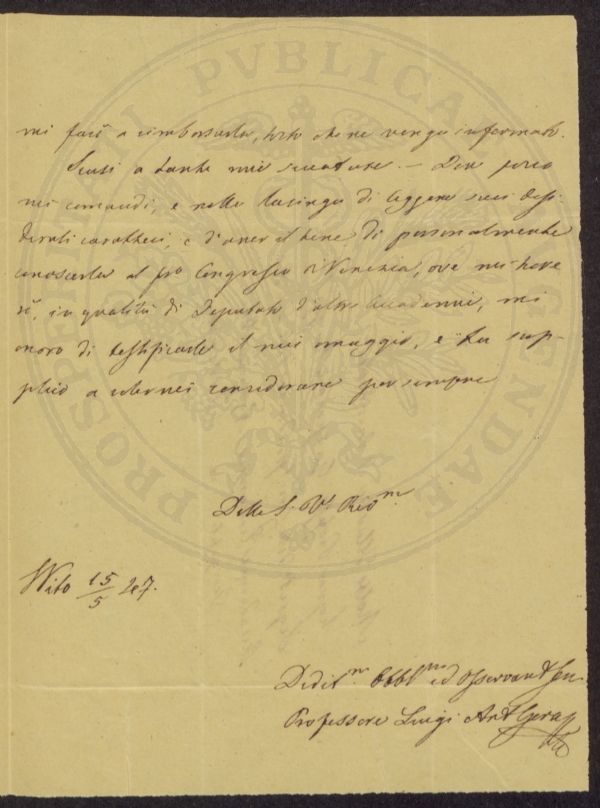 mi farò a rimborsarla, tosto che ne venga informato.
Scusi a tante mie seccature. — Don
mi comandi, e nella lusinga di leggere suoi desi-
derati caratteri, e d'aver il bene di personalmente
conoscerla al pro Congresso di Venezia, ove mi
in qualità di Deputato d'altre Accademie, mi
onoro di testificarle il mio omaggio, e La sup-
plico a volermi considerare per sempre
Della S. Va Revm.
Vito 15/5 847.
Devotm. Obblm. ed Osservant
Professore Luigi Ant
PROSPERITATI PVBLICAE AVGENDAE